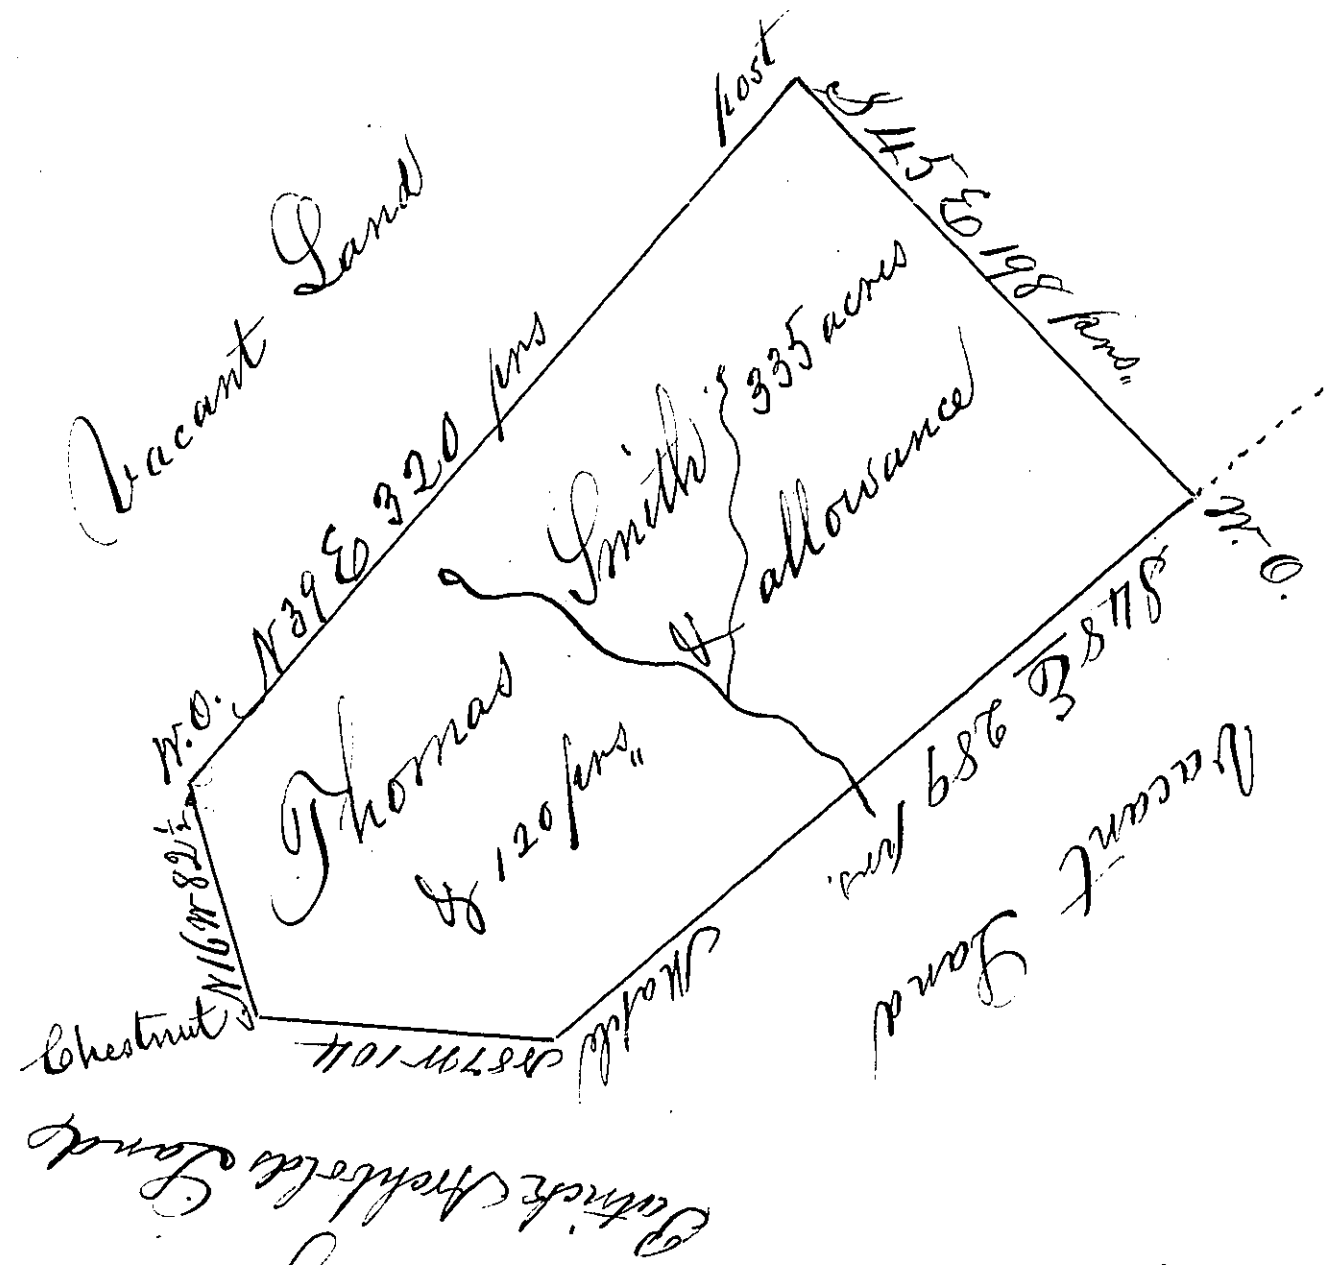 Vacant Land
post
S 45 E 198 prs"
W.O. N 39 E 320 prs
Thomas Smith 335 acres
& 120 prs" & allowance
W.O.
S 48 E 289 prs.
Vacant Land
Maple
N 87 W 104
Chestnut N 16 W 82 ½
Patrick Archbolds Land